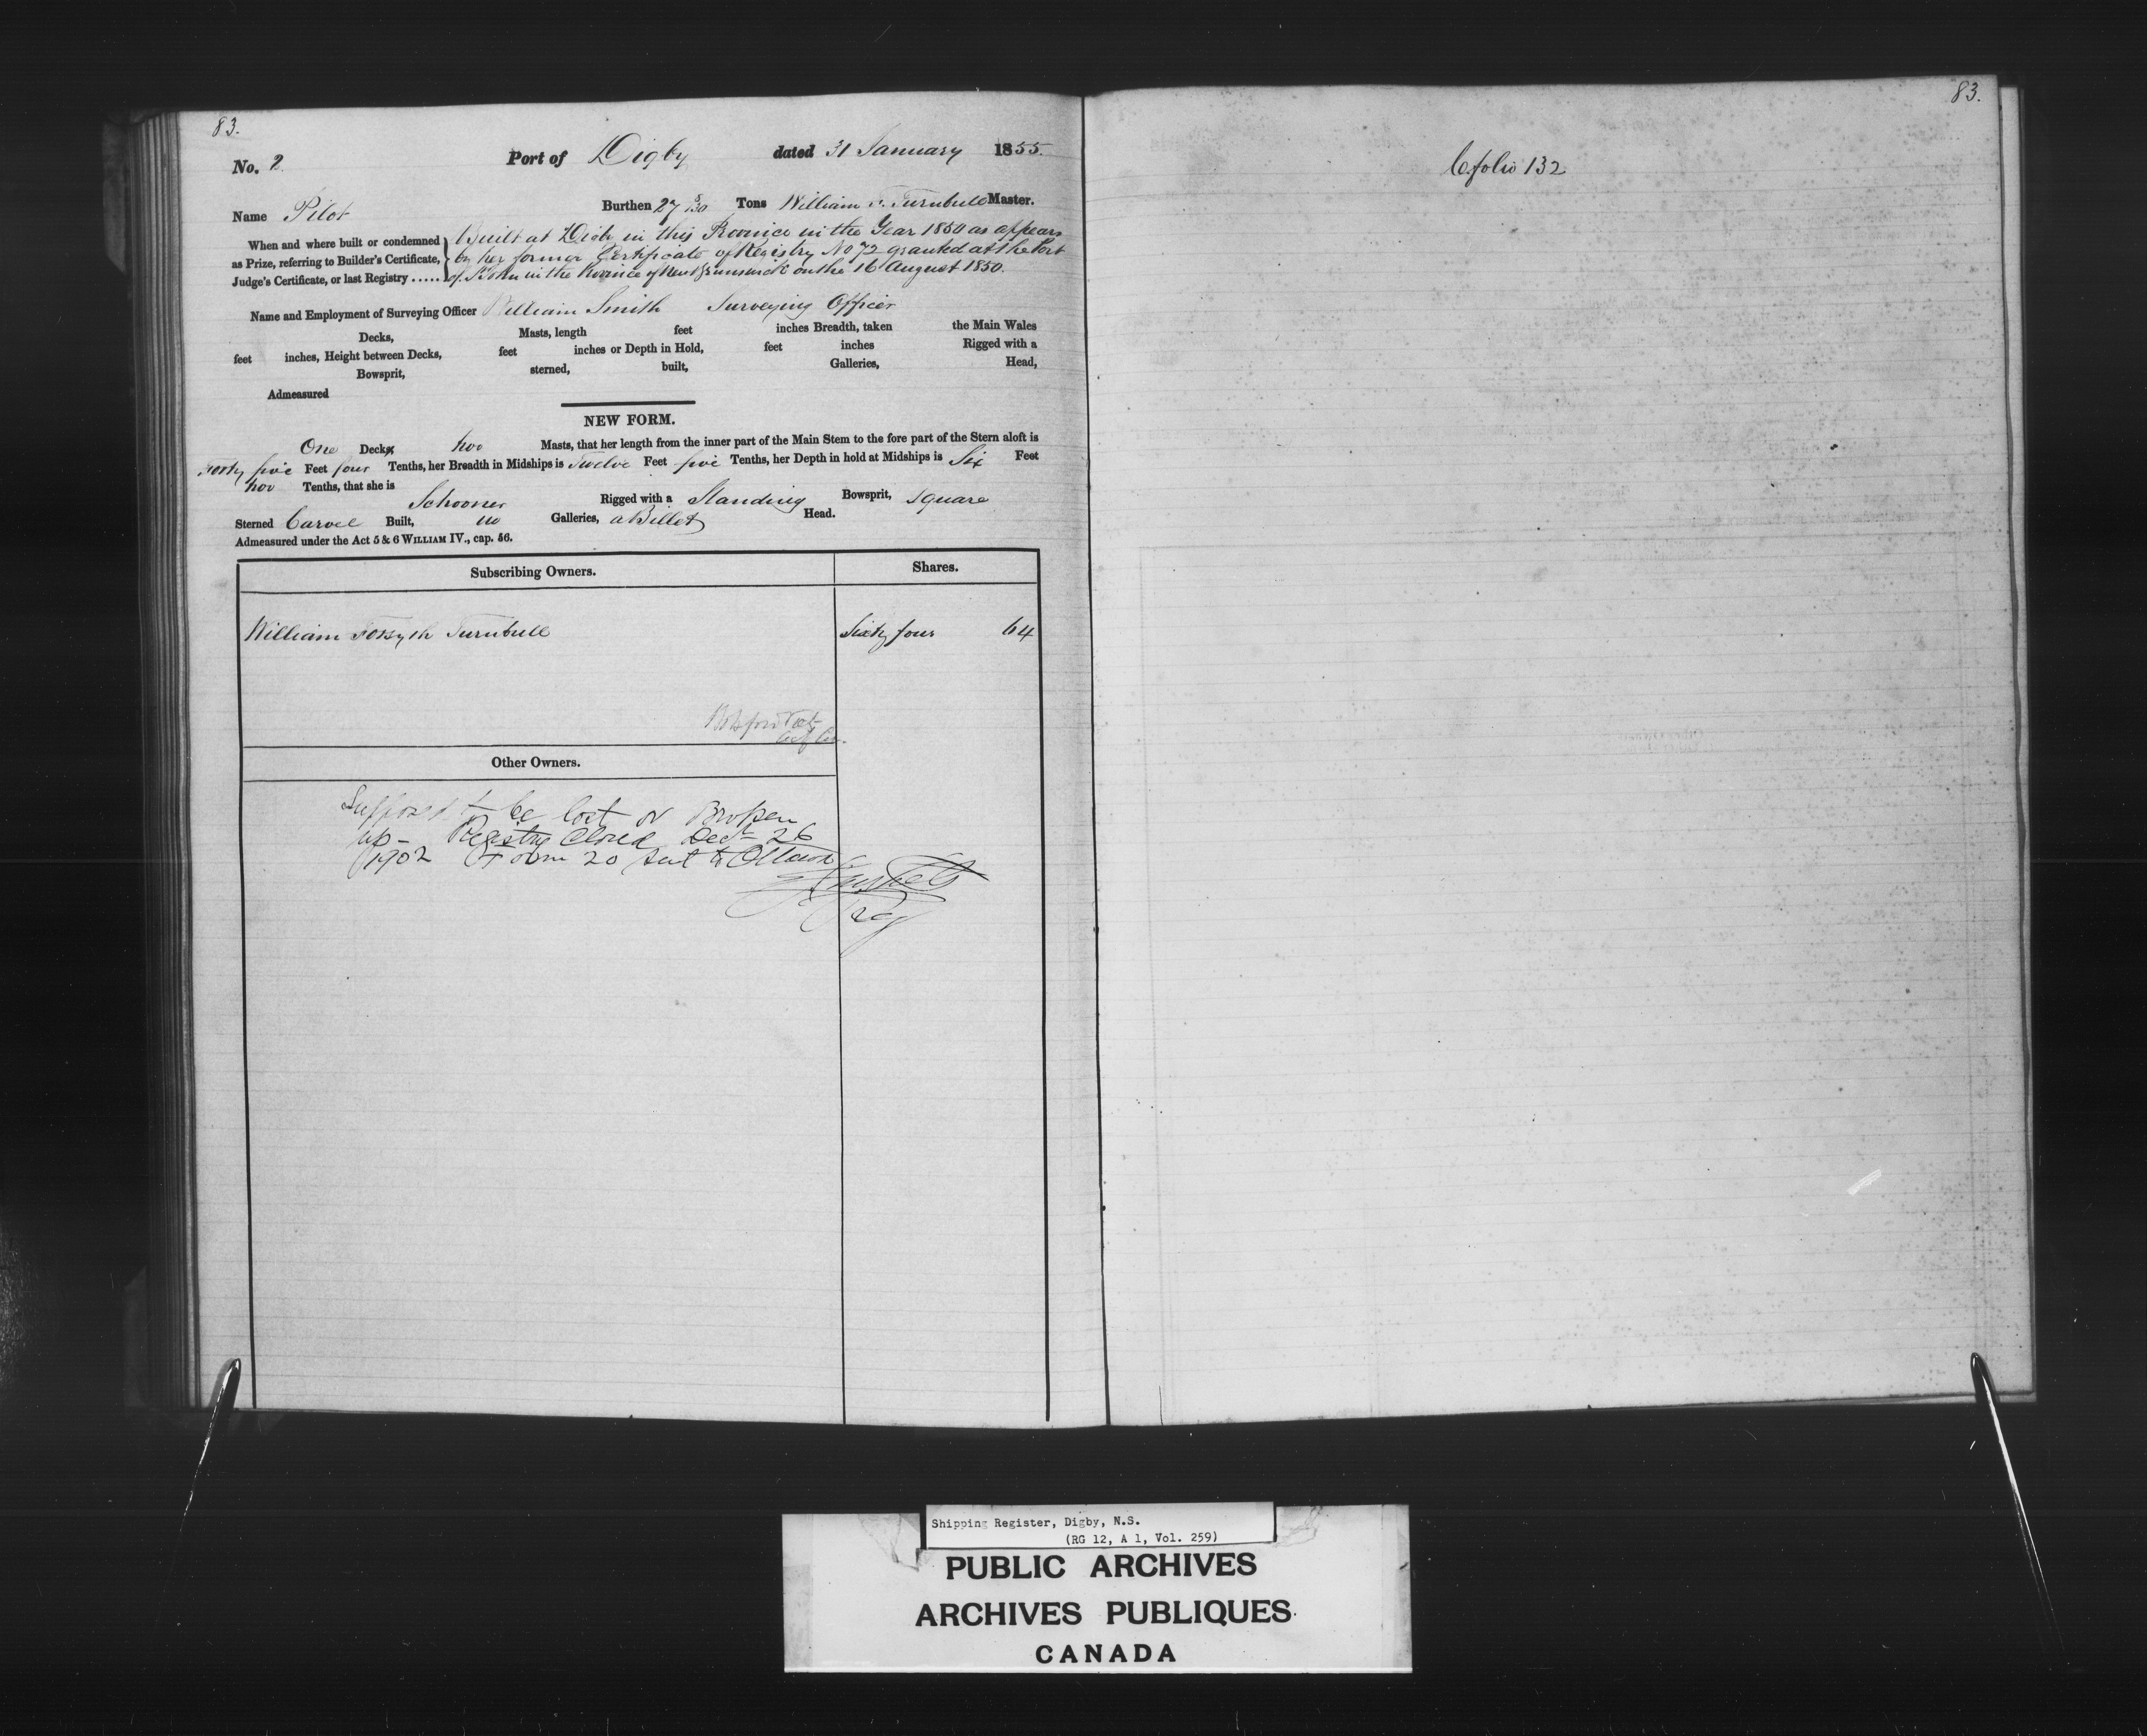 83.
No. 2. Port of Digby dated 31 January 1855.
Name Pilot Burthen 27 Tons William F. Turnbull Master.
When and where built or condemned as Prize, referring to Builder's Certificate, Judge's Certificate, or last Registry ......
Built at Digby in this Province in the Year 1850 as appears
by her former Certificate of Registry No 72 granted at the Port
of St John in the Province of New Brunswick on the 16 August 1850.
Name and Employment of Surveying Officer William Smith Surveying Officer
Decks, Masts, length feet inches Breadth, taken the Main Wales
feet inches, Height between Decks, feet inches or Depth in Hold, feet inches Rigged with a
Bowsprit, sterned, built, Galleries, Head,
Admeasured
NEW FORM.
One Decks two Masts, that her length from the inner part of the Main Stem to the fore part of the Stern aloft is
Forty five Feet four Tenths, her Breadth in Midships is Twelve Feet five Tenths, her Depth in hold at Midships is Six Feet
two Tenths, that she is Schooner Rigged with a Standing Bowsprit, square
Sterned Carvel Built, no Galleries, a Billet Head.
Admeasured under the Act 5 & 6 WILLIAM IV., cap. 56.
Subscribing Owners. Shares.
William Forsyth Turnbull Sixty four 64
Other Owners.
Supposed to be lost or Broken
up - Registry Closed Decr 26
1902 Form 20 sent to Ottawa
83.
folio 132
Shipping Register, Digby, N.S.
(RG 12, A 1, Vol. 259)
PUBLIC ARCHIVES
ARCHIVES PUBLIQUES
CANADA